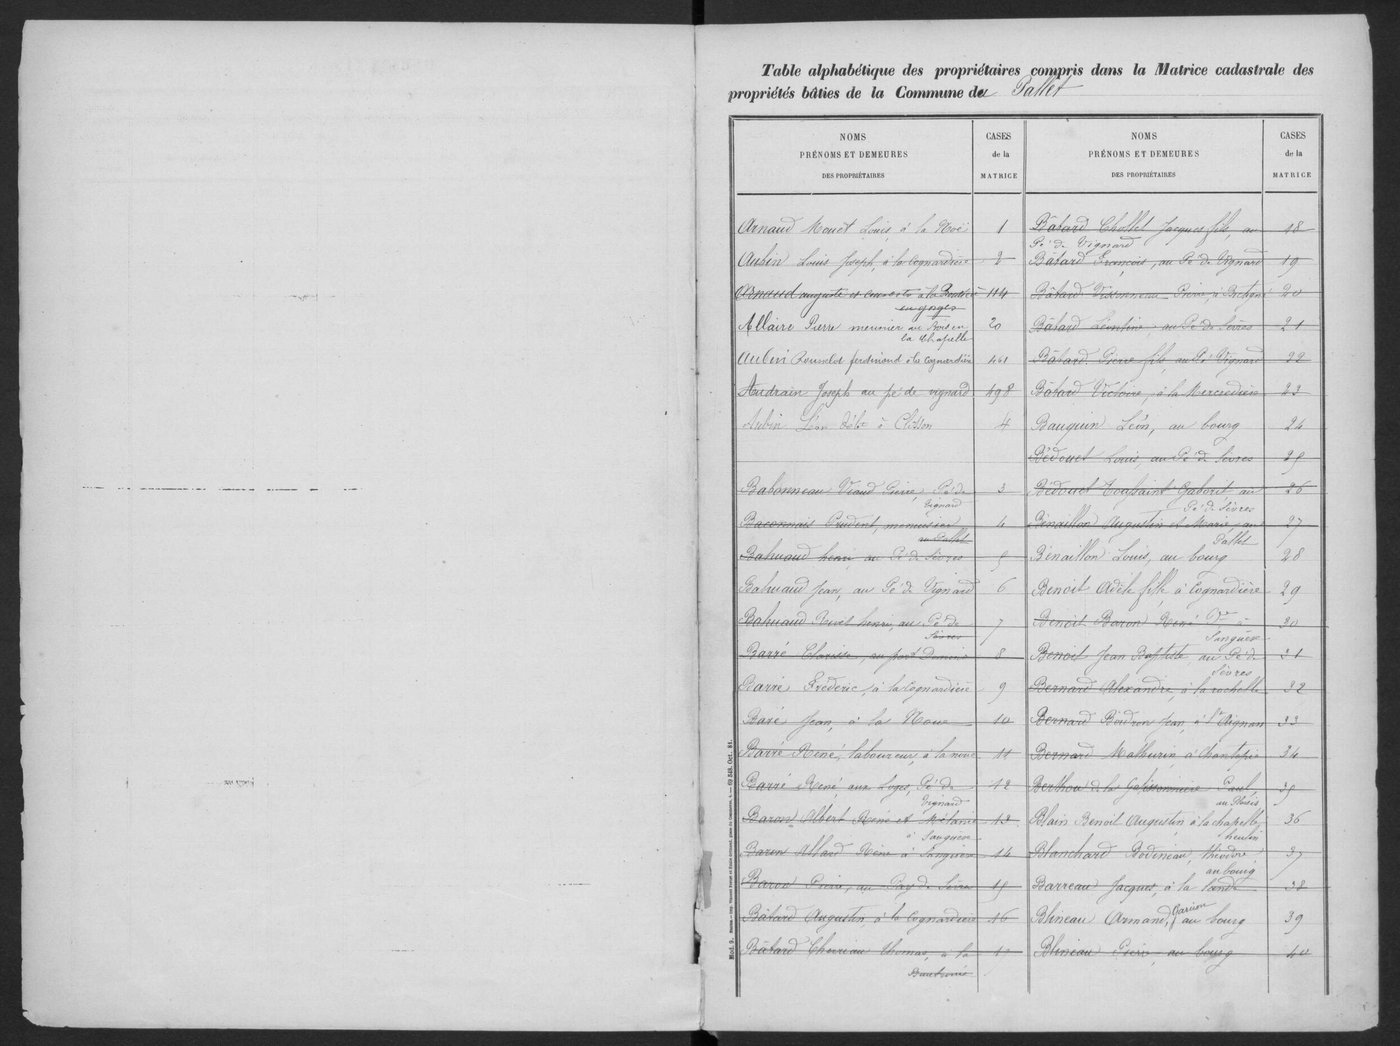 Table alphabétique des propriétaires compris dans la Matrice cadastrale des
propriétés bâties de la Commune du Pallet
NOMS
PRÉNOMS ET DEMEURES
DES PROPRIÉTAIRES
CASES
de la
MATRICE
Arnaud Mouet Louis, à la Noë 1
Aubin Louis Joseph, à la Cognardière 2
Arnaud auguste et à la 114
en gorges
Allaire Pierre meunier au Bois en 20
la Chapelle
Aubin ferdinand à la Cognardière 461
Audrain Joseph au pé de vignard 498
Aubin Léon à Clisson 4
Babonneau Viaud Pierre, Pé de 3
Vignard
Baconnais Prudent, menuisier 4
au Pallet
Bahuaud henri au Pé de Sèvres 5
Bahuaud Jean, au Pé de Vignard 6
Bahuaud henri, au Pé de 7
Sèvres
Barré Clarisse, au port Domino 8
Barré Fréderic, à la Cognardière 9
Baré Jean, à la Noue 10
Barré René, laboureur, à la noue 11
Barré René, aux Loges, Pé de 12
Vignard
Baron Albert René et Mélanie 13
à Sanguèse
Baron Allard Réne à Sanguèse 14
Baron Pierre, au Pay de Sèvres 15
Bâtard Augustin, à la Cognardière 16
Bâtard Thomas, à la 17
NOMS
PRÉNOMS ET DEMEURES
DES PROPRIÉTAIRES
CASES
de la
MATRICE
Bâtard Chollet Jacques fils, au 18
Pé de Vignard
Bâtard François, au Pé de Vignard 19
Bâtard Pierre, à 20
Bâtard Léontine, au Pé de Sèvres 21
Bâtard Pierre fils, au Pé Vignard 22
Bâtard Victoire, à la Mercredière 23
Bauquin Léon, au bourg 24
Bédouet Louis, au Pé de Sèvres 25
Bédouet Toussaint Gaborit au 26
Pé de Sèvres
Bénaillon Augustin et Marie, au 27
Pallet
Bénaillon Louis, au bourg 28
Benoit Adèle fille à Cognardière 29
Benoit Baron René Vve à 30
Sanguèse
Benoit Jean Baptiste au Pé de 31
Sèvres
Bernard Alexandre, à la rochelle 32
Bernard Bondron Jean, à St Aignan 33
Bernard Mathurin à Chantepie 34
Berthou de la Galissonnière Paul, 35
au Plessis
Blain Benoit Augustin à la chapelle 36
heulin
Blanchard Bodineau, théodore 37
au bourg
Barreau Jacques, à la Lande 38
Blineau Armand, Garion au bourg 39
Blineau Pierre, au bourg 40